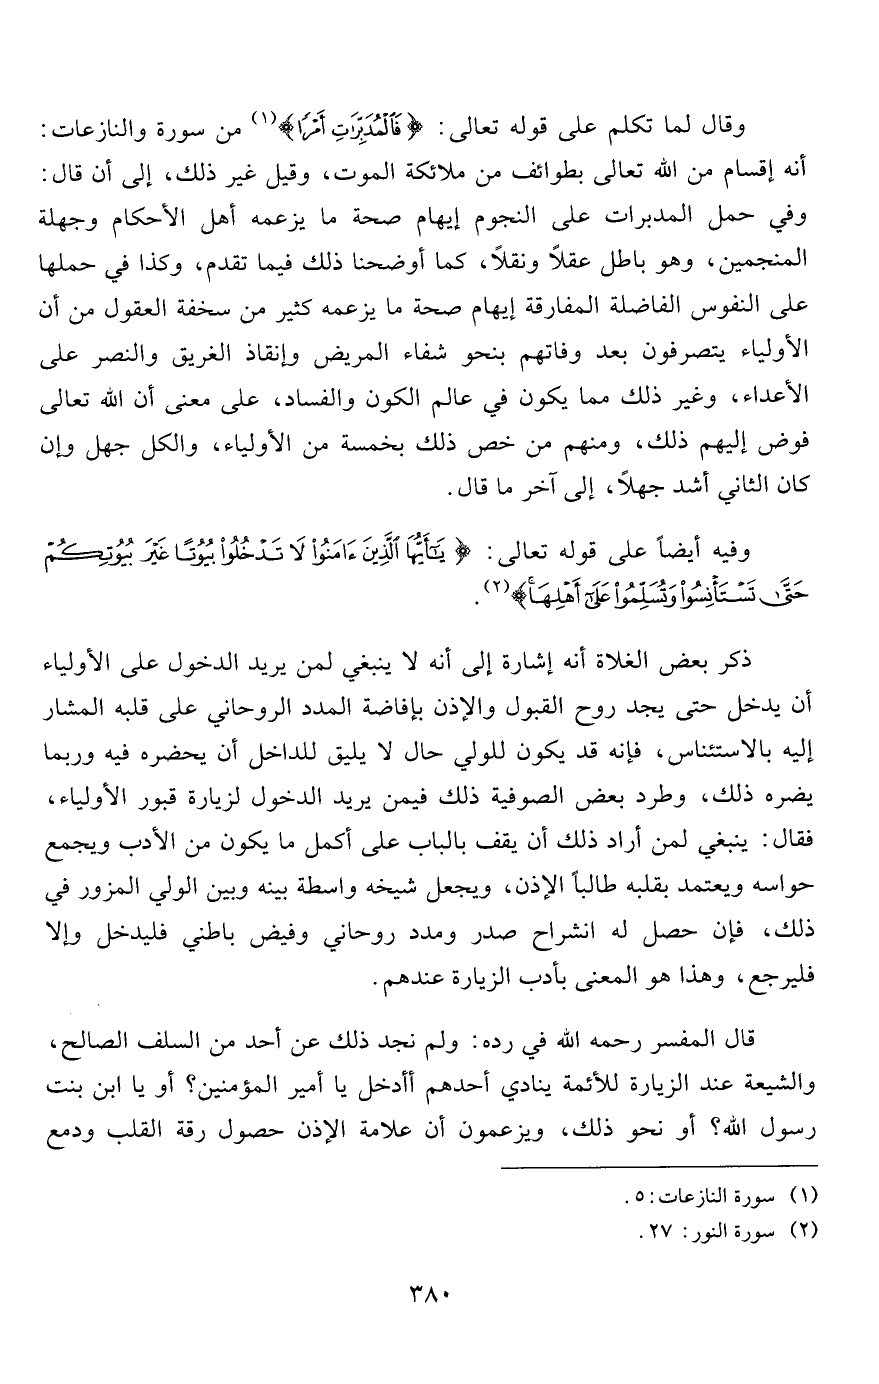 وقال لما تكلم على قوله تعالى: ﴿فَٱلْمُدَبِّرَٰتِ أَمْرًا﴾(١) من سورة والنازعات:
أنه إقسام من الله تعالى بطوائف من ملائكة الموت، وقيل غير ذلك، إلى أن قال:
وفي حمل المدبرات على النجوم إيهام صحة ما يزعمه أهل الأحكام وجهلة
المنجمين، وهو باطل عقلاً ونقلاً، كما أوضحنا ذلك فيما تقدم، وكذا في حملها
على النفوس الفاضلة المفارقة إيهام صحة ما يزعمه كثير من سخفة العقول من أن
الأولياء يتصرفون بعد وفاتهم بنحو شفاء المريض وإنقاذ الغريق والنصر على
الأعداء، وغير ذلك مما يكون في عالم الكون والفساد، على معنى أن الله تعالى
فوض إليهم ذلك، ومنهم من خص ذلك بخمسة من الأولياء، والكل جهل وإن
كان الثاني أشد جهلاً، إلى آخر ما قال.
وفيه أيضاً على قوله تعالى: ﴿يَٰٓأَيُّهَا ٱلَّذِينَ ءَامَنُوا۟ لَا تَدْخُلُوا۟ بُيُوتًا غَيْرَ بُيُوتِكُمْ
حَتَّىٰ تَسْتَأْنِسُوا۟ وَتُسَلِّمُوا۟ عَلَىٰٓ أَهْلِهَا ۚ﴾(٢).
ذكر بعض الغلاة أنه إشارة إلى أنه لا ينبغي لمن يريد الدخول على الأولياء
أن يدخل حتى يجد روح القبول والإذن بإفاضة المدد الروحاني على قلبه المشار
إليه بالاستئناس، فإنه قد يكون للولي حال لا يليق للداخل أن يحضره فيه وربما
يضره ذلك، وطرد بعض الصوفية ذلك فيمن يريد الدخول لزيارة قبور الأولياء،
فقال: ينبغي لمن أراد ذلك أن يقف بالباب على أكمل ما يكون من الأدب ويجمع
حواسه ويعتمد بقلبه طالباً الإذن، ويجعل شيخه واسطة بينه وبين الولي المزور في
ذلك، فإن حصل له انشراح صدر ومدد روحاني وفيض باطني فليدخل وإلا
فليرجع، وهذا هو المعنى بأدب الزيارة عندهم.
قال المفسر رحمه الله في رده: ولم نجد ذلك عن أحد من السلف الصالح،
والشيعة عند الزيارة للأئمة ينادي أحدهم أأدخل يا أمير المؤمنين؟ أو يا ابن بنت
رسول الله؟ أو نحو ذلك، ويزعمون أن علامة الإذن حصول رقة القلب ودمع
(١) سورة النازعات: ٥.
(٢) سورة النور: ٢٧.
٣٨٠